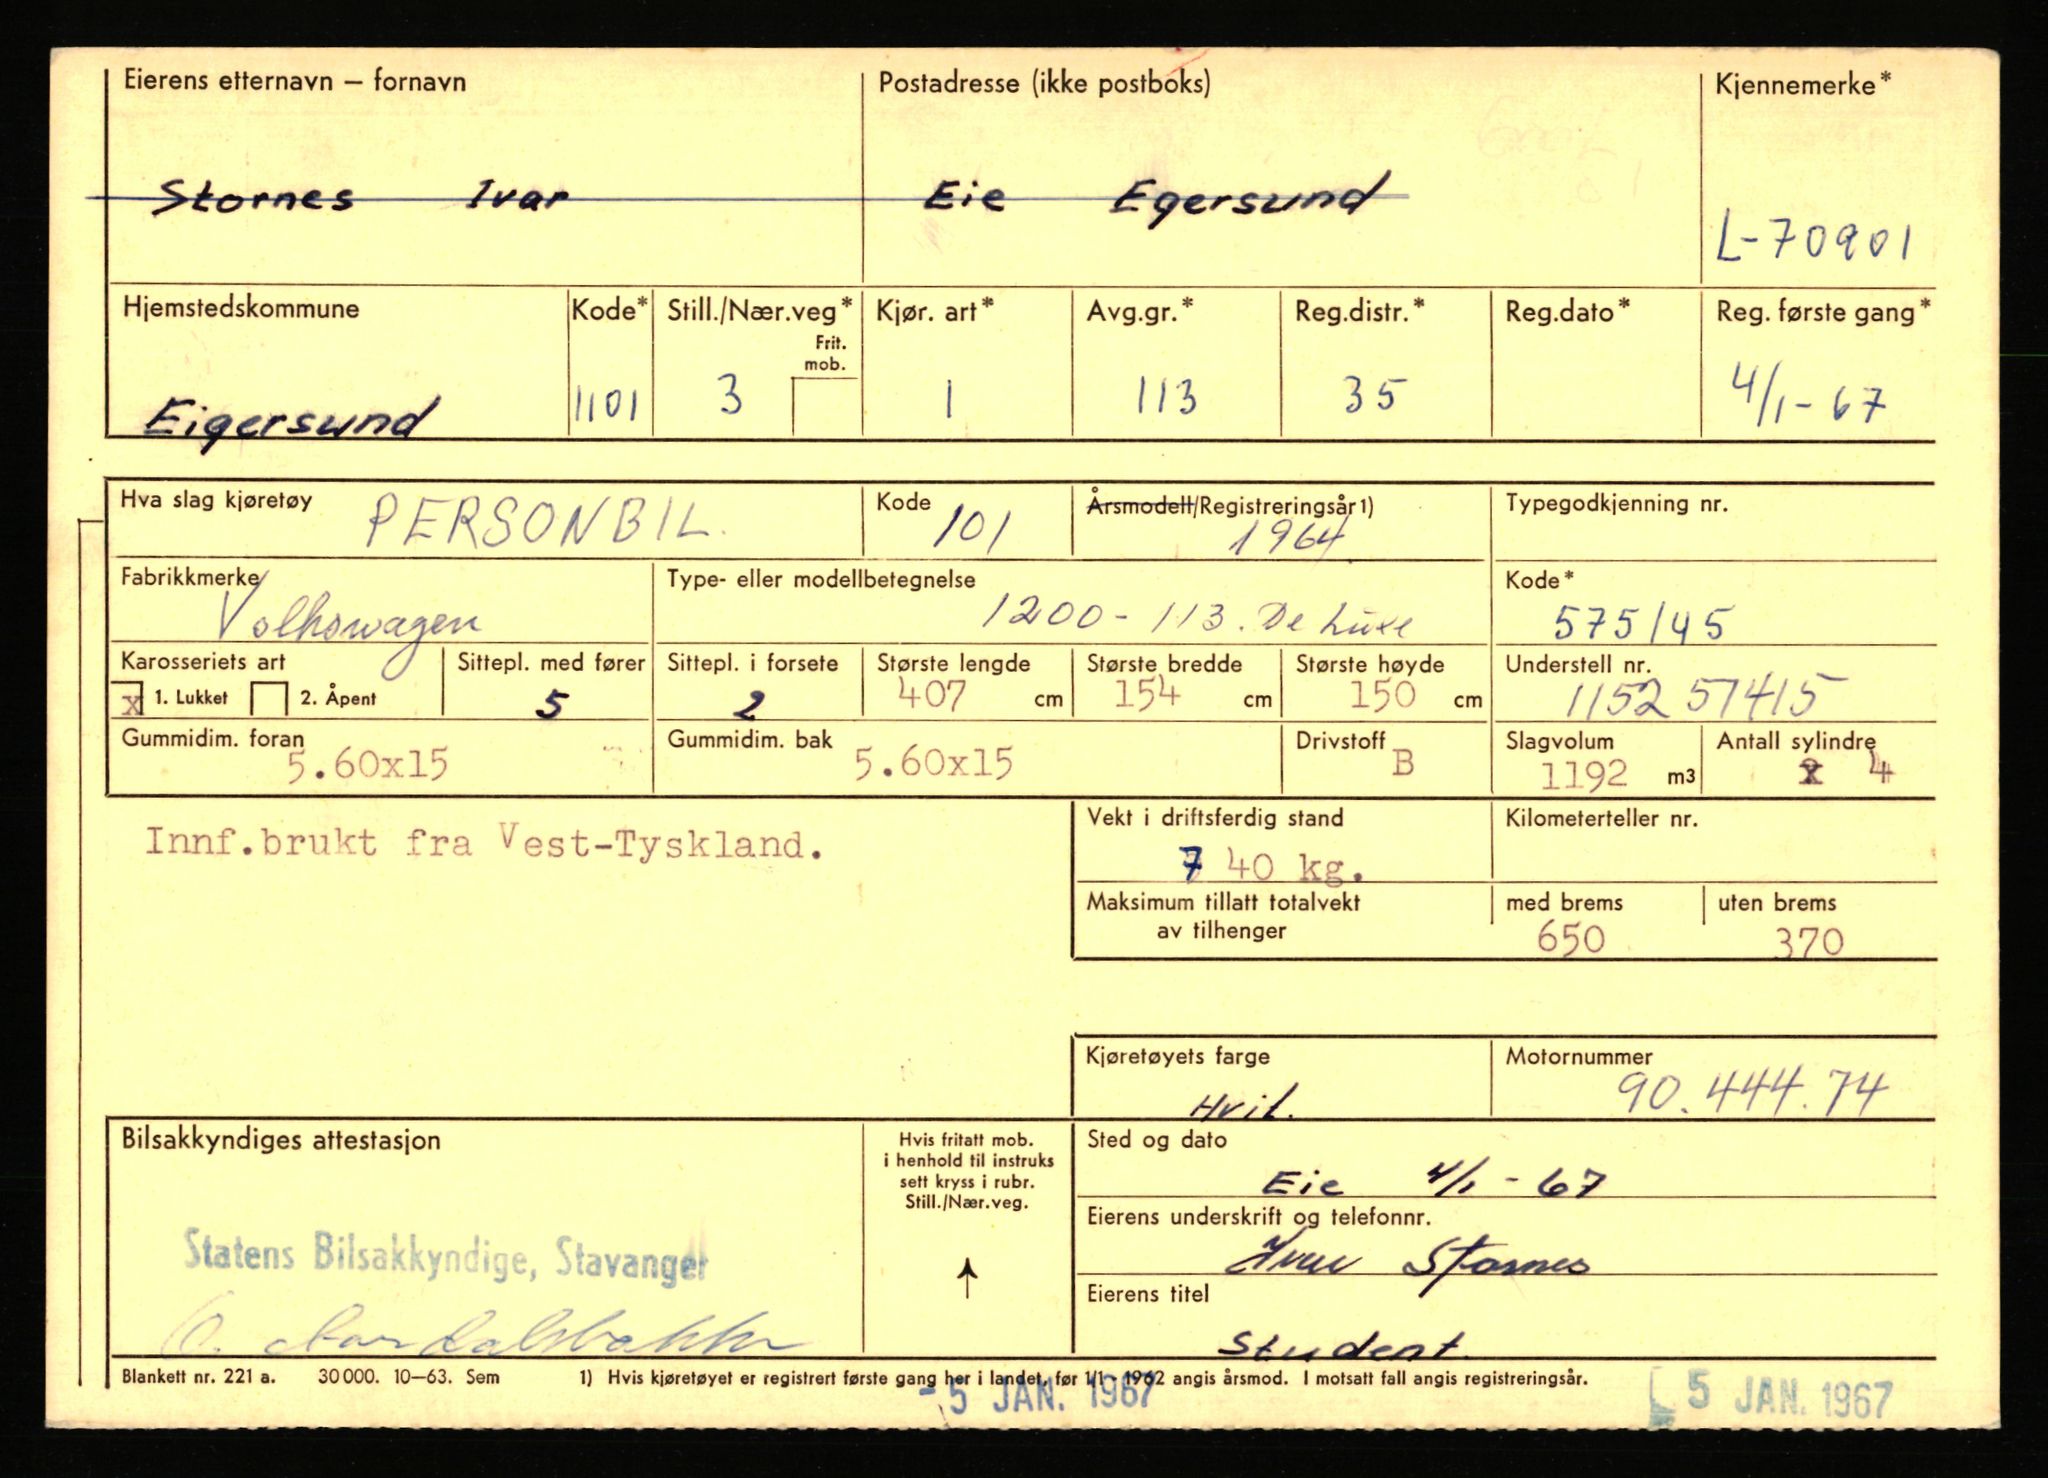 Eierens etternavn – fornavn Postadresse (ikke postboks) Kjennemerke*
Stornes Ivar Eie Egersund
L-70901
Hjemstedskommune Kode* Still./Nær.veg* Kjør. art* Avg.gr.* Reg.distr.* Reg.dato* Reg. første gang*
Frit.
mob.
Eigersund 1101 3 1 113 35 4/1-67
Hva slag kjøretøy PERSONBIL. Kode 101 Årsmodell/Registreringsår 1) 1964 Typegodkjenning nr.
Fabrikkmerke Type- eller modellbetegnelse Kode*
Volkswagen 1200-113. De Luxe 575145
Karosseriets art Sittepl. med fører Sittepl. i forsete Største lengde Største bredde Største høyde Understell nr.
x 1. Lukket 2. Åpent 5 2 407 cm 154 cm 150 cm 115257415
Gummidim. foran Gummidim. bak Drivstoff Slagvolum Antall sylindre
5.60x15 5.60x15 B 1192 m3 4
Innf.brukt fra Vest-Tyskland.
Vekt i driftsferdig stand Kilometerteller nr.
740 kg.
Maksimum tillatt totalvekt med brems uten brems
av tilhenger 650 370
Kjøretøyets farge Motornummer
Hvit. 90.444.74
Bilsakkyndiges attestasjon
Hvis fritatt mob.
i henhold til instruks
sett kryss i rubr.
Still./Nær.veg.
Sted og dato
Eie 4/1-67
Eierens underskrift og telefonnr.
Statens Bilsakkyndige, Stavanger
Ivar Stornes
Eierens titel
Student.
Blankett nr. 221 a. 30 000. 10–63. Sem 1) Hvis kjøretøyet er registrert første gang her i landet, før 1/1 - 1962 angis årsmod. I motsatt fall angis registreringsår.
-5 JAN. 1967 5 JAN. 1967